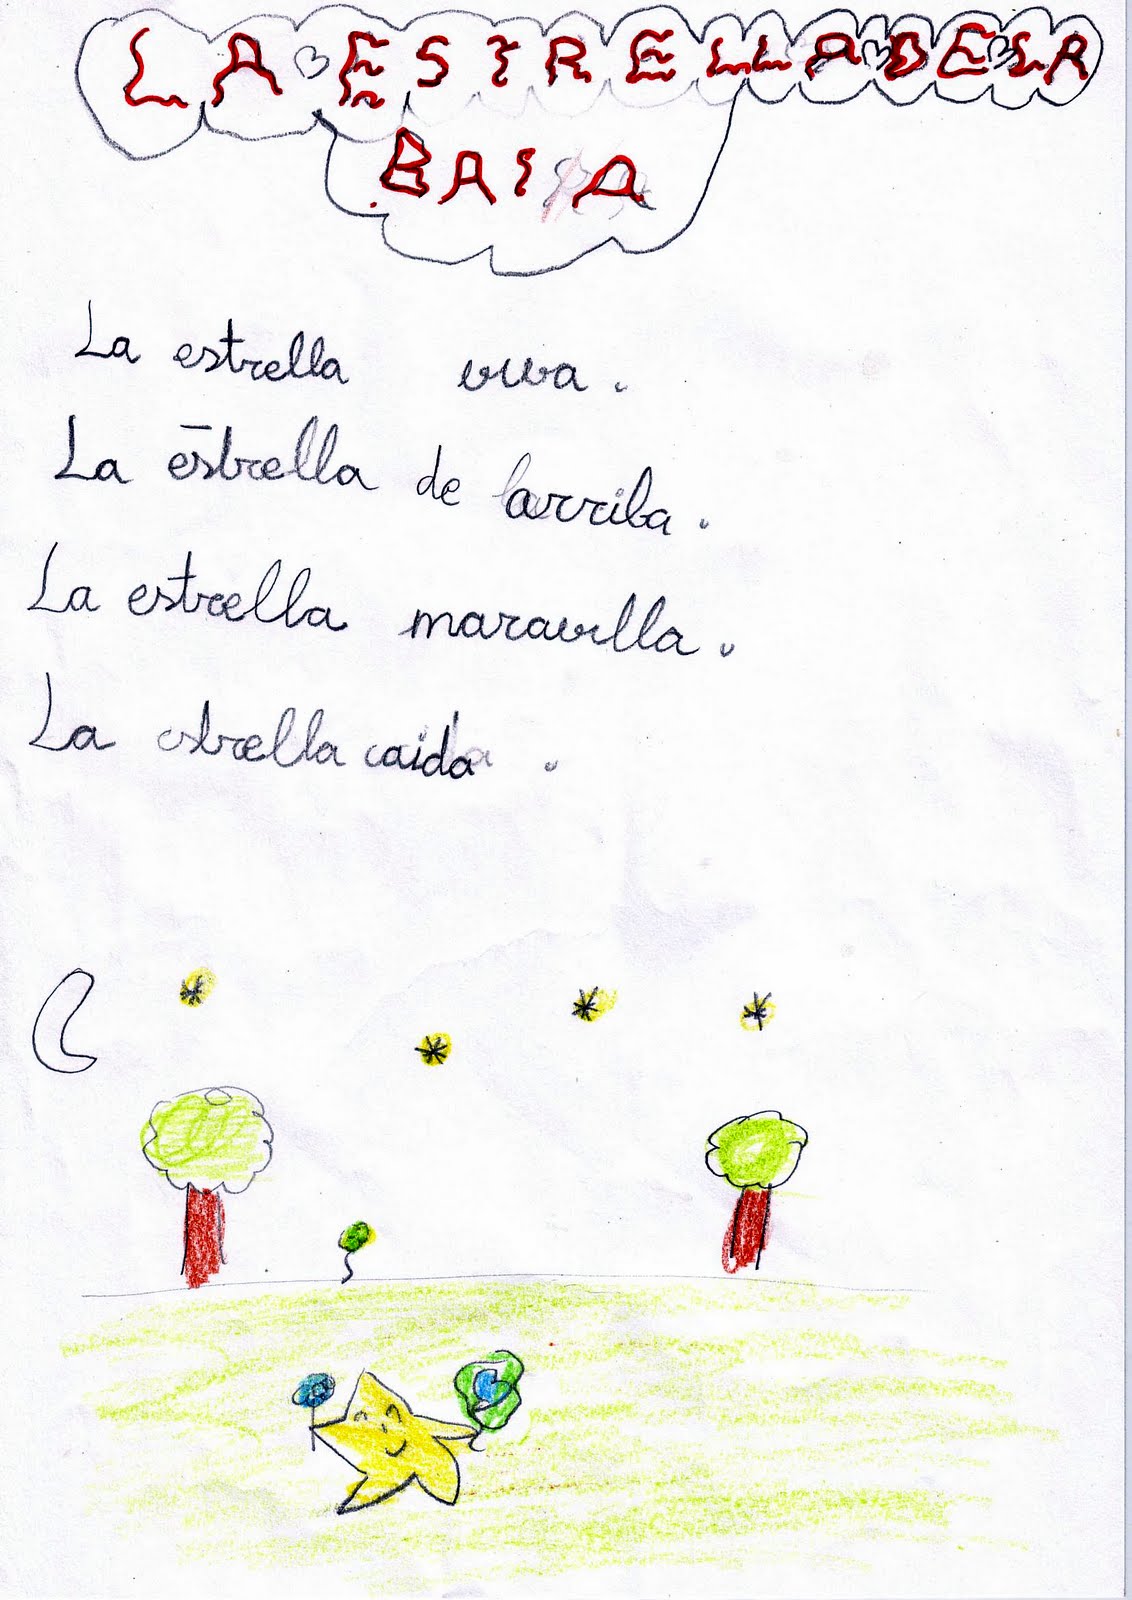 LA ESTRELLA DE LA
BAIA
La estrella viva.
La estrella de arriba.
La estrella maravilla.
La estrella caida.